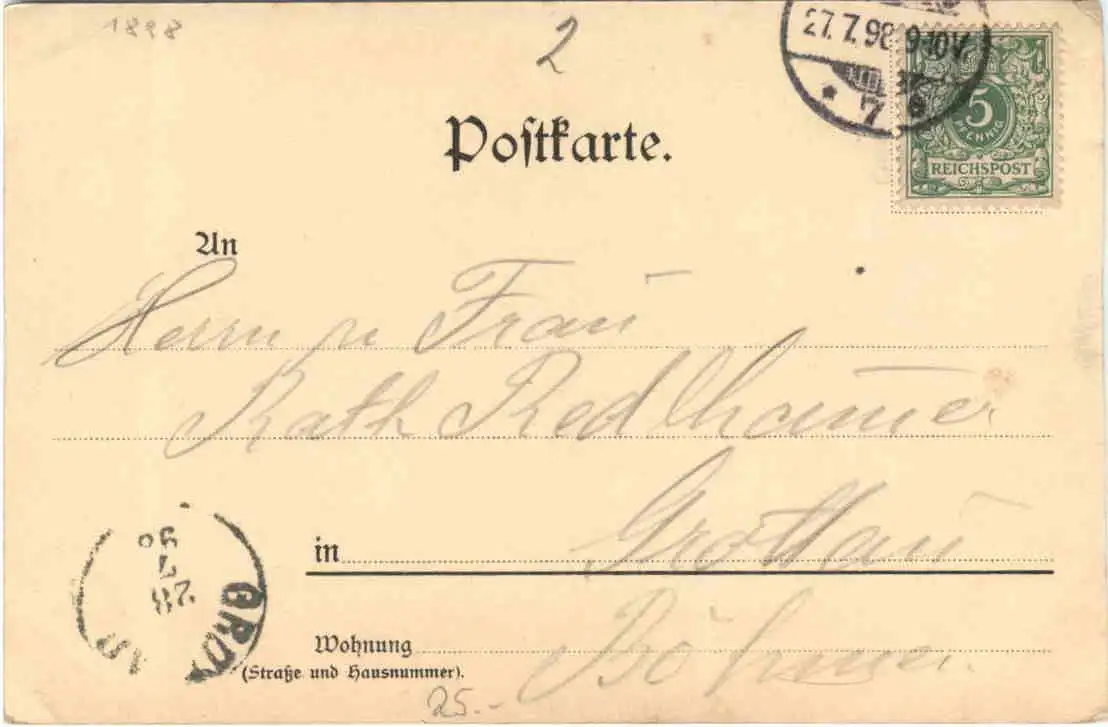 1898
2
27.7.98 9-10V.
* 7 e
5
PFENNIG
REICHSPOST
Postkarte.
An
Herrn u Frau
Kath Redlhamer
in Grottau
Wohnung Böhmen.
(Straße und Hausnummer).
GROT AU
28
7
25.-